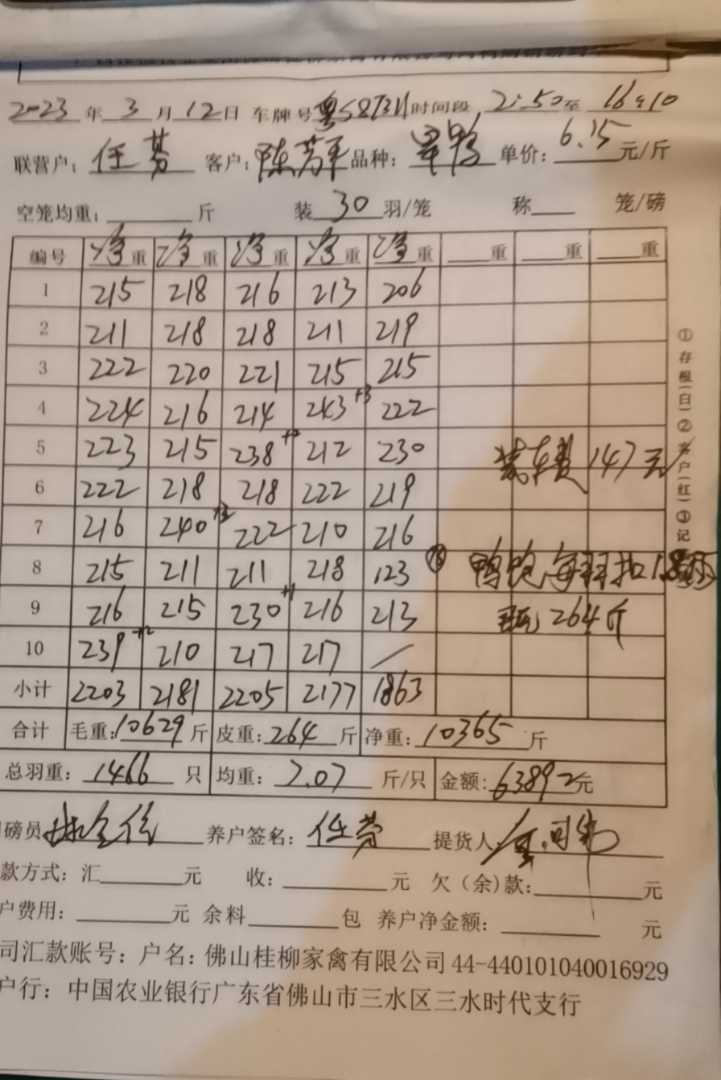 2023 年 3 月 12 日 车牌号 粤S8T3H 时间段 2:50 至 16:10
联营户: 任芬 客户: 陈芳平 品种: 单价: 6.15 元/斤
空笼均重: 斤 装 30 羽/笼 称 笼/磅
编号 净重 净重 净重 净重 净重 重 重 重
1 215 218 216 213 206
2 211 218 218 211 219
3 222 220 221 215 215
4 224 216 214 243 +3 222
5 223 215 238 212 230
6 222 218 218 222 219
7 216 240 222 210 216
8 215 211 211 218 123
9 216 215 230 +1 216 213
10 239 +2 210 217 217 /
小计 2203 2181 2205 2177 1863
装车费 147元
264斤
合计 毛重: 10629 斤 皮重: 264 斤 净重: 10365 斤
总羽重: 1466 只 均重: 7.07 斤/只 金额: 63892 元
磅员 养户签名: 任芬 提货人
款方式: 汇 元 收: 元 欠(余)款: 元
户费用: 元 余料 包 养户净金额: 元
司汇款账号: 户名: 佛山桂柳家禽有限公司 44-440101040016929
户行: 中国农业银行广东省佛山市三水区三水时代支行
①存根(白)②客户(红)③记